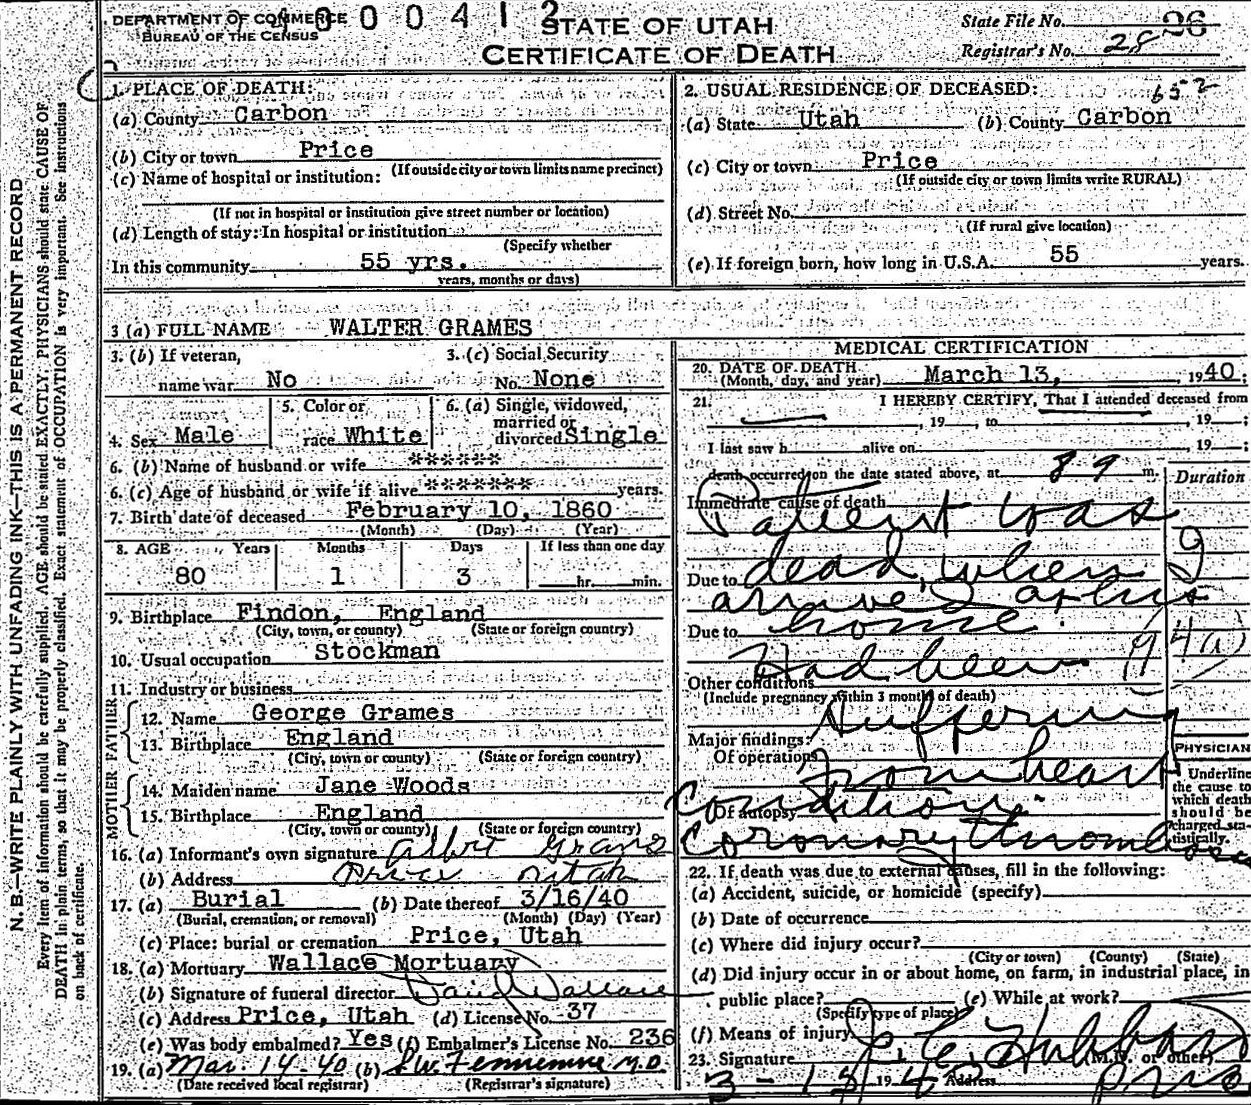 DEPARTMENT OF COMMERCE
BUREAU OF THE CENSUS
400412
STATE OF UTAH
CERTIFICATE OF DEATH
State File No. 26
Registrar's No. 28
N. B.—WRITE PLAINLY WITH UNFADING INK—THIS IS A PERMANENT RECORD
Every item of information should be carefully supplied. AGE should be stated EXACTLY. PHYSICIANS should state CAUSE OF
DEATH in plain terms, so that it may be properly classified. Exact statement of OCCUPATION is very important. See instructions
on back of certificate.
1. PLACE OF DEATH:
(a) County Carbon
(b) City or town Price
(If outside city or town limits name precinct)
(c) Name of hospital or institution:
(If not in hospital or institution give street number or location)
(d) Length of stay: In hospital or institution
(Specify whether
In this community 55 yrs.
years, months or days)
2. USUAL RESIDENCE OF DECEASED: 652
(a) State Utah (b) County Carbon
(c) City or town Price
(If outside city or town limits write RURAL)
(d) Street No.
(If rural give location)
(e) If foreign born, how long in U.S.A. 55 years.
3 (a) FULL NAME WALTER GRAMES
3. (b) If veteran, name war No
3. (c) Social Security No. None
4. Sex Male
5. Color or race White
6. (a) Single, widowed, married or divorced Single
6. (b) Name of husband or wife ******
6. (c) Age of husband or wife if alive ******* years.
7. Birth date of deceased February 10, 1860
(Month) (Day) (Year)
8. AGE Years Months Days If less than one day
80 1 3 hr. min.
9. Birthplace Findon, England
(City, town, or county) (State or foreign country)
10. Usual occupation Stockman
11. Industry or business
FATHER
12. Name George Grames
13. Birthplace England
(City, town, or county) (State or foreign country)
MOTHER
14. Maiden name Jane Woods
15. Birthplace England
(City, town or county) (State or foreign country)
16. (a) Informant's own signature Albert Grames
(b) Address Price Utah
17. (a) Burial (b) Date thereof 3/16/40
(Burial, cremation, or removal) (Month) (Day) (Year)
(c) Place: burial or cremation Price, Utah
18. (a) Mortuary Wallace Mortuary
(b) Signature of funeral director David Wallace
(c) Address Price, Utah (d) License No. 37
(e) Was body embalmed? Yes (f) Embalmer's License No. 236
19. (a) Mar. 14-40 (b) M.D.
(Date received local registrar) (Registrar's signature)
MEDICAL CERTIFICATION
20. DATE OF DEATH
(Month, day, and year) March 13, 1940;
21. I HEREBY CERTIFY, That I attended deceased from
, 19 , to , 19 ;
I last saw h alive on 19 ;
death occurred on the date stated above, at 8 9 m.
Duration
Immediate cause of death Patient was
Due to dead, when I
arrived at his
Due to home.
Had been 94a
Other conditions
(Include pregnancy within 3 months of death)
suffering
Major findings:
Of operations from heart
Of autopsy condition.
coronary thrombosis
PHYSICIAN
Underline
the cause to
which death
should be
charged sta-
tistically.
22. If death was due to external causes, fill in the following:
(a) Accident, suicide, or homicide (specify)
(b) Date of occurrence
(c) Where did injury occur?
(City or town) (County) (State)
(d) Did injury occur in or about home, on farm, in industrial place, in
public place? (e) While at work?
(Specify type of place)
(f) Means of injury
23. Signature J. C. Hubbard (M.D. or other)
1940 Address Price